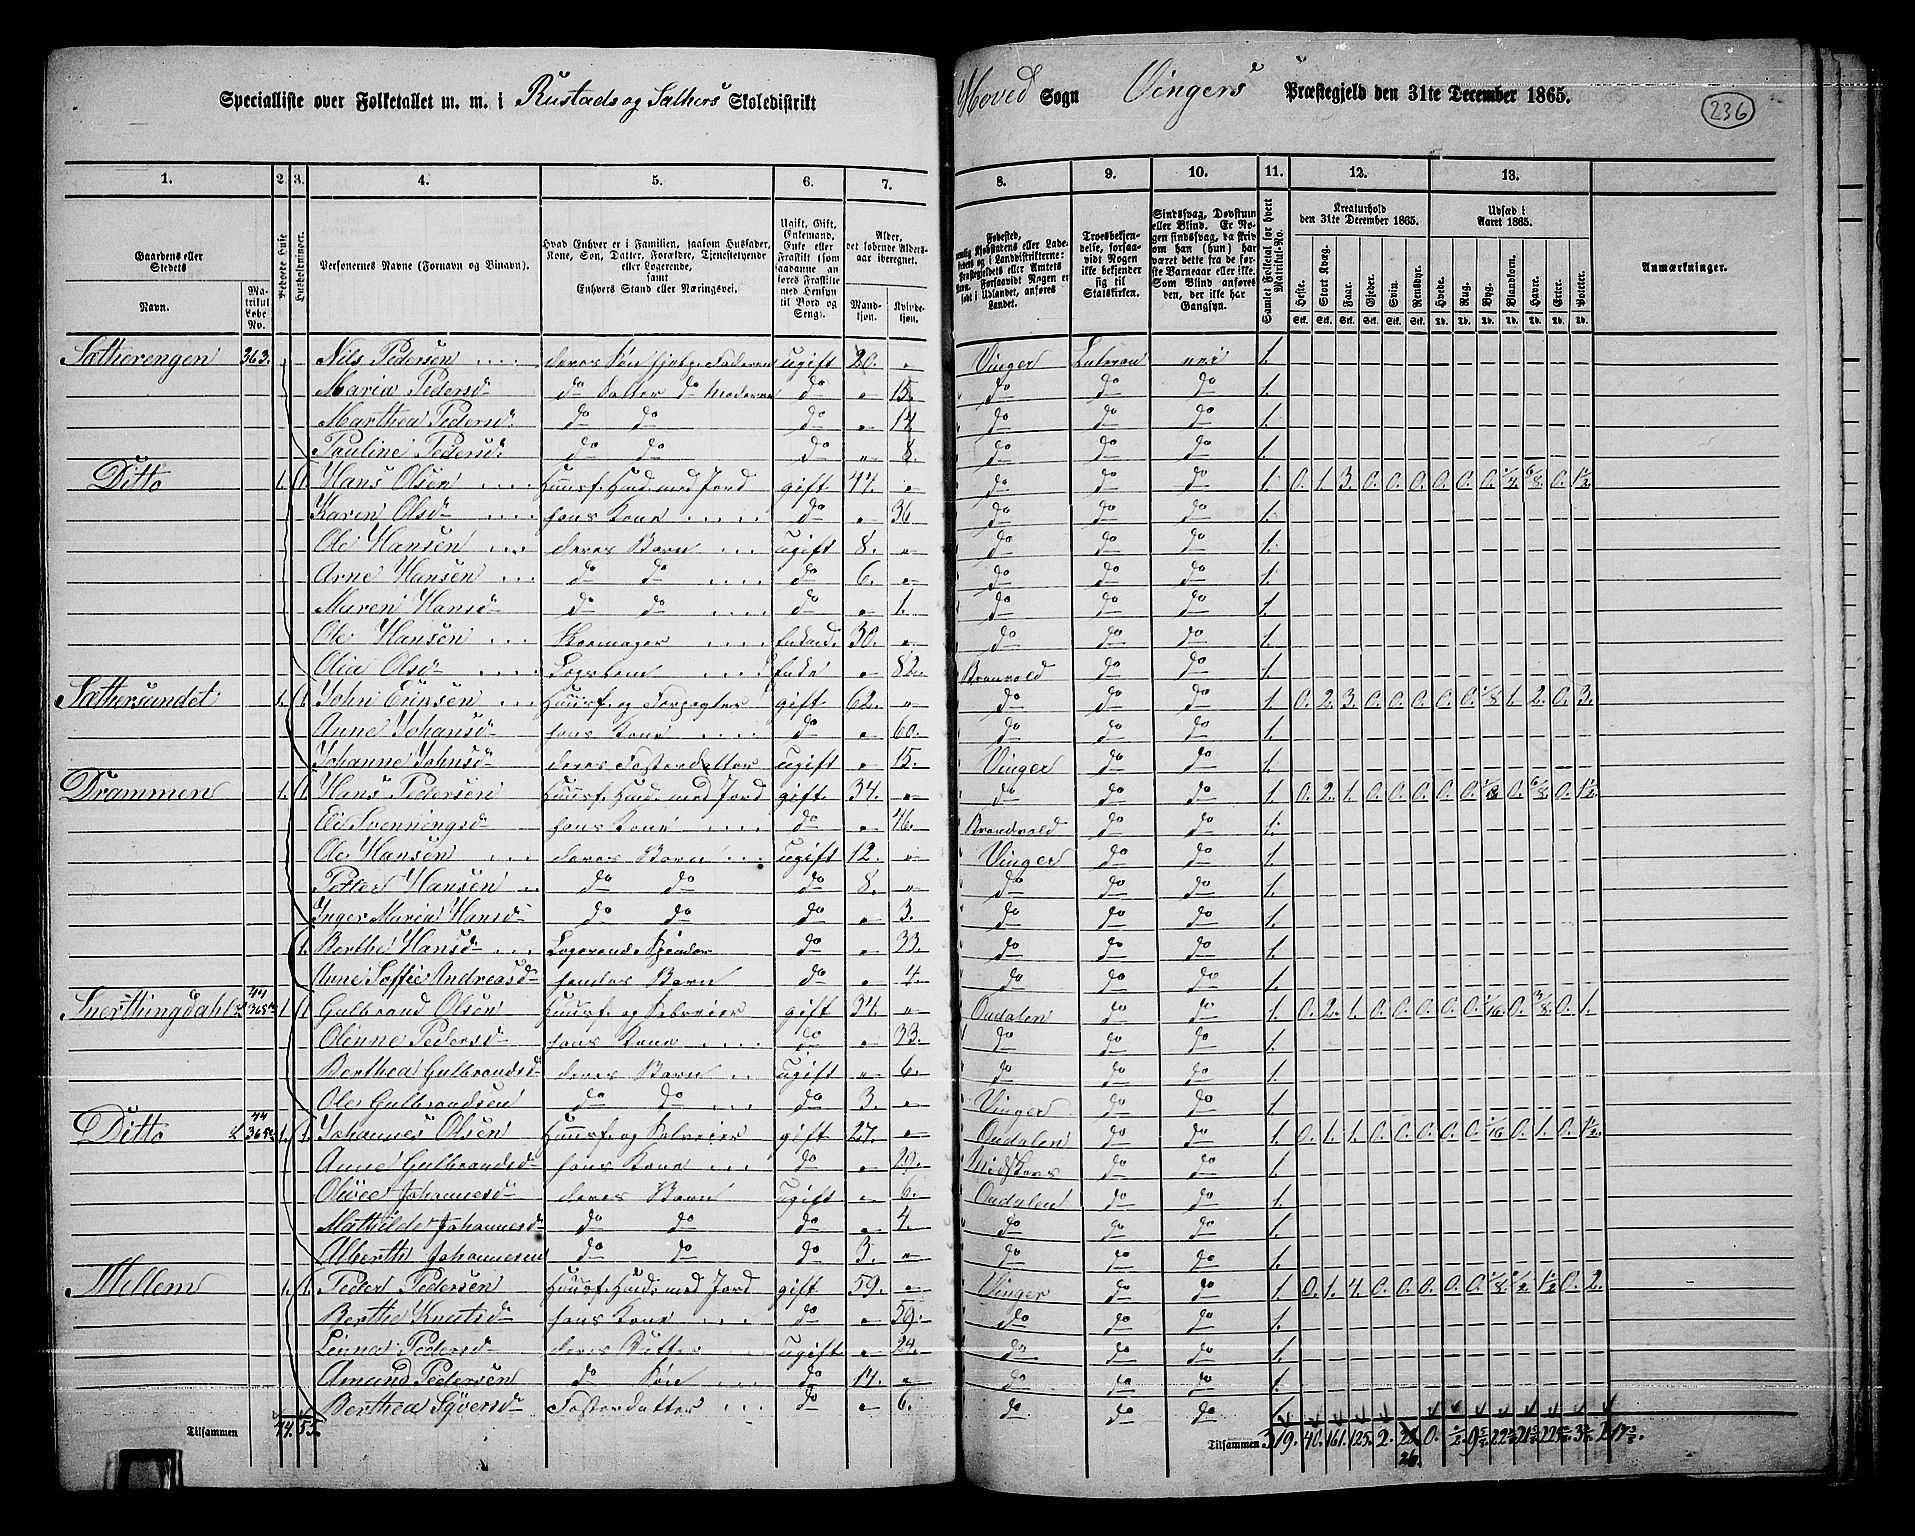 Specialliste over Folketallet m. m. i Rustads og Sæthers Skoledistrikt Hoved Sogn Vingers Præstegjeld den 31te December 1865.
236
1. 2. 3. 4. 5. 6. 7. 8. 9. 10. 11. 12. 13.
Gaardens eller Stedets
Navn. Matrikul Løbe No.
Bebøede Huse
Husholdninger.
Personernes Navne (Fornavn og Binavn).
Hvad Enhver er i Familien, saasom Husfader, Kone, Søn, Datter, Forældre, Tjenestetyende eller Logerende,
samt
Enhvers Stand eller Næringsvei.
Ugift, Gift, Enkemand, Enke eller Fraskilt
Alder, det løbende Aldersaar iberegnet.
Mandkjøn. Kvindekjøn.
Fødested,
Troesbekjendelse, forsaavidt Nogen ikke bekjender sig til Statskirken.
Sindssvag, Døvstum eller Blind. Er Nogen sindssvag, da skriv om han (hun) har været dette fra de første Barneaar eller ikke. Som Blind anføres den, der ikke har Gangsyn.
Samlet Folketal for hvert Matrikul-No.
Kreaturhold den 31te December 1865.
Udsæd i Aaret 1865.
Heste. Stort Kvæg. Faar. Gjeder. Svin. Rensdyr. Hvede. Rug. Byg. Blandkorn. Havre. Erter. Poteter.
Anmærkninger.
Sætherengen 363. Nils Pedersen deres Søn ugift 20. Vinger Luteran nei 1.
Maria Pedersd do Datter do Moderen do 15. do do do 1.
Marthea Pedersd do do do do do do 1.
Pauline Pedersd do do do 8. do do do 1.
Ditto 1. 1. Hans Olsen Huusf. Husm. med Jord gift 44. do do do 1. 0. 1. 3. 0. 0. 0. 0. 0. 0. 1/4. 6/8. 0. 1½.
Karen Olsd hans Kone do 36 do do do 1.
Ole Hansen deres Barn ugift 8. do do do 1.
Arne Hansen do do do 6. do do do 1.
Maren Hansd do do do 1. do do do 1.
Ole Hansen Skomager Enkemd. 30. do do do 1.
Olia Olsd Enke 82. Brandvold do do 1.
Sæthersundet 1. 1. John Eriksen Huusf. og Forpagter gift 62. do do do 1. 0. 2. 3. 0. 0. 0. 0. 0. 1/8 1. 2. 0. 3.
Anne Johansd hans Kone do 60. do do do 1.
Johanne Johnsd deres Fosterdatter ugift 15. Vinger do do 1.
Drammen 1. 1. Hans Pedersen Huusf. Husm. med Jord gift 34. do do do 1. 0. 2. 1. 0. 0. 0. 0. 0. 1/8 0. 6/8. 0. 1½.
Eli Svenningsd hans Kone do 46. Brandvold do do 1.
Ole Hansen deres Barn ugift 12. Vinger do do 1.
Petter Hansen do do do 8. do do do 1.
Inger Maria Hansd do do do 3. do do do 1.
1. Berthe Hansd Logerende do 33. do do do 1.
Anne Soffie Andreasd hendes Barn do 4. do do do 1.
Snerthingdahl 1. 1. Gulbrand Olsen Huusf. og Selveier gift 34. Oudalen do do 1. 0. 2. 1. 0. 0. 0. 0. 0. 1/16 0. 3/8. 0. 1.
Olinne Pedersd hans Kone do 33. do do do 1.
Berthea Gulbrandsd deres Barn ugift 6. do do do 1.
Ole Gulbrandsen do do do 3. Vinger do do 1.
Ditto 1. 1. Johannes Olsen Huusf. og Selveier gift 27. Oudalen do do 1. 0. 1. 1. 0. 0. 0. 0. 0. 1/16 0. 1. 0. 1½.
Anne Gulbrandsd hans Kone do 29. do do 1.
Olivie Johannesd deres Barn ugift 6. Oudalen do do 1.
Mathilde Johannesd do do do 4. do do do 1.
Alberth Johannesen do do do 3. do do do 1.
Mellem 1. 1. Peder Pedersen Huusf. Husm. med Jord gift 59. Vinger do do 1. 0. 1. 4. 0. 0. 0. 0. 0. 1/8. ½. 1½ 0. 2.
Berthe Knutsd hans Kone do 59. do do do 1.
Linna Pedersd deres Datter ugift 29. do do do 1.
Amund Pedersen do Søn do 14. do do do 1.
Berthea Syversd Fosterdatter do 6. do do do 1.
Tilsammen 44. 55.
Tilsammen 319. 40. 161. 125. 2. 26. 0.